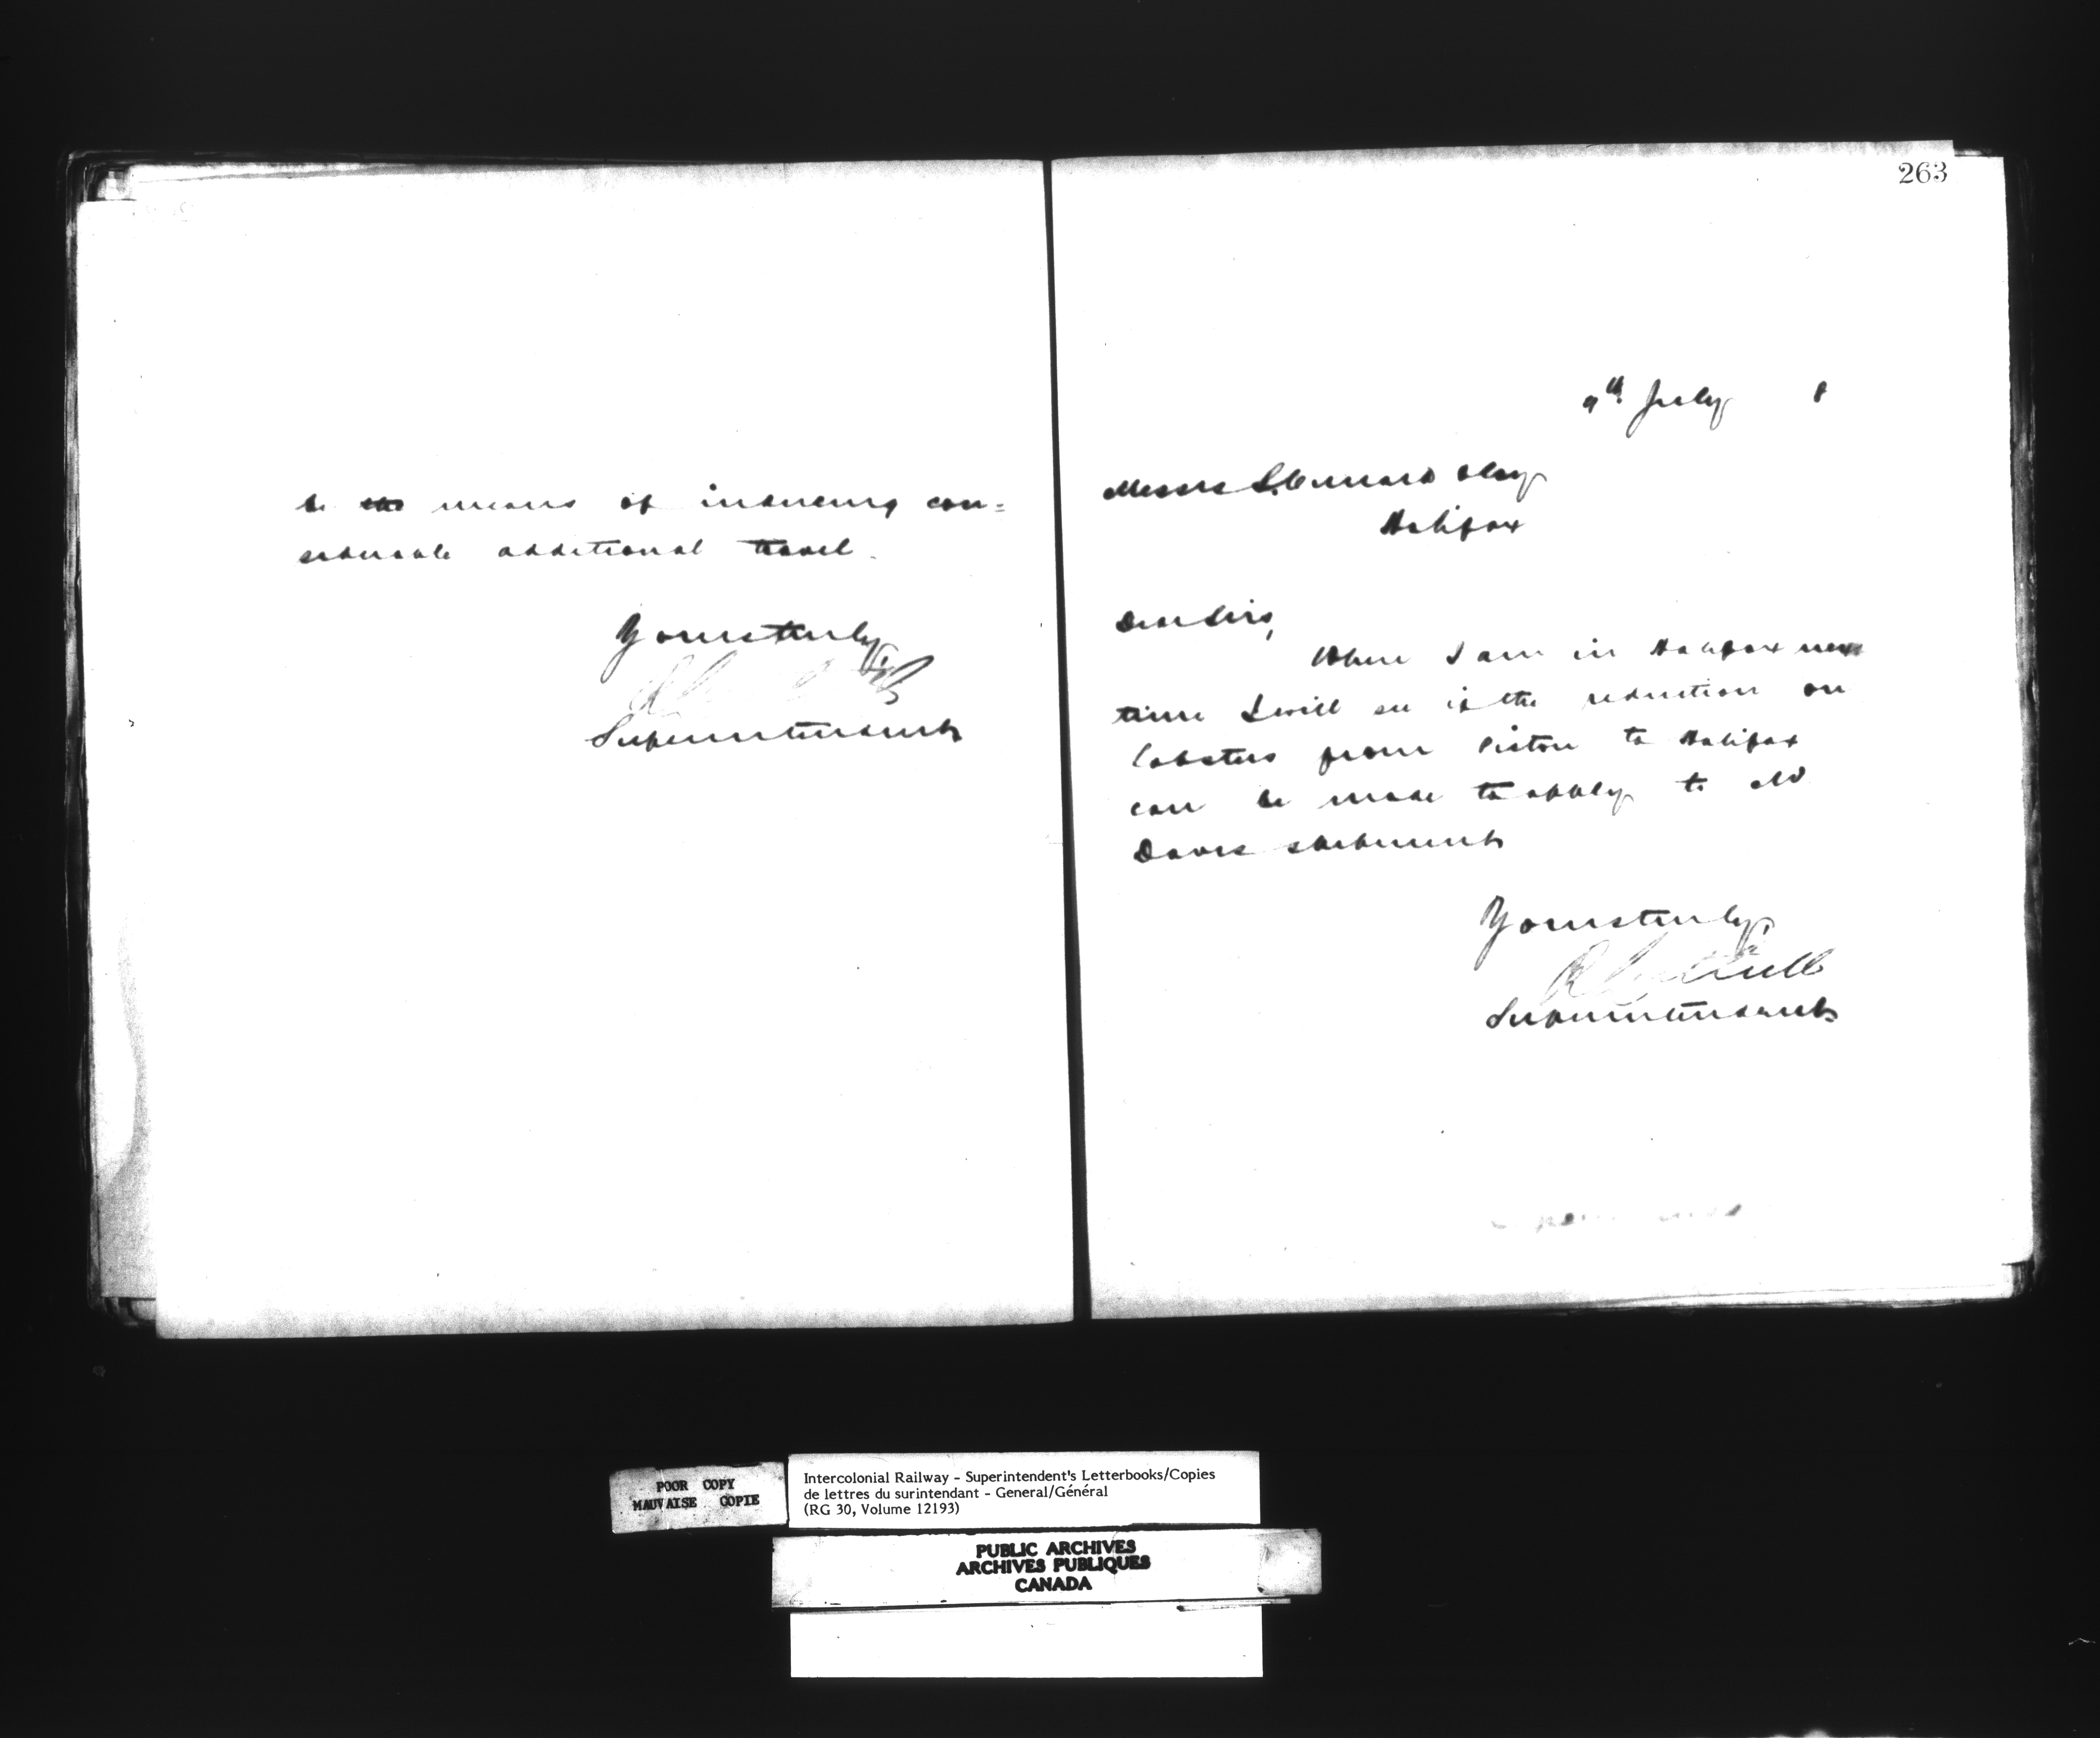 be the means of inducing con=
siderable additional travel.
Yours truly
Superintendent
263
9th July 8
Messrs S. Cunard & Coy
Halifax
Dear Sirs,
When I am in Halifax next
time I will see if the reduction on
lobsters from Pictou to Halifax
can be made to apply to
Davis shipments
Yours truly
Superintendent
POOR COPY
MAUVAISE COPIE
Intercolonial Railway - Superintendent's Letterbooks/Copies
de lettres du surintendant - General/Général
(RG 30, Volume 12193)
PUBLIC ARCHIVES
ARCHIVES PUBLIQUES
CANADA